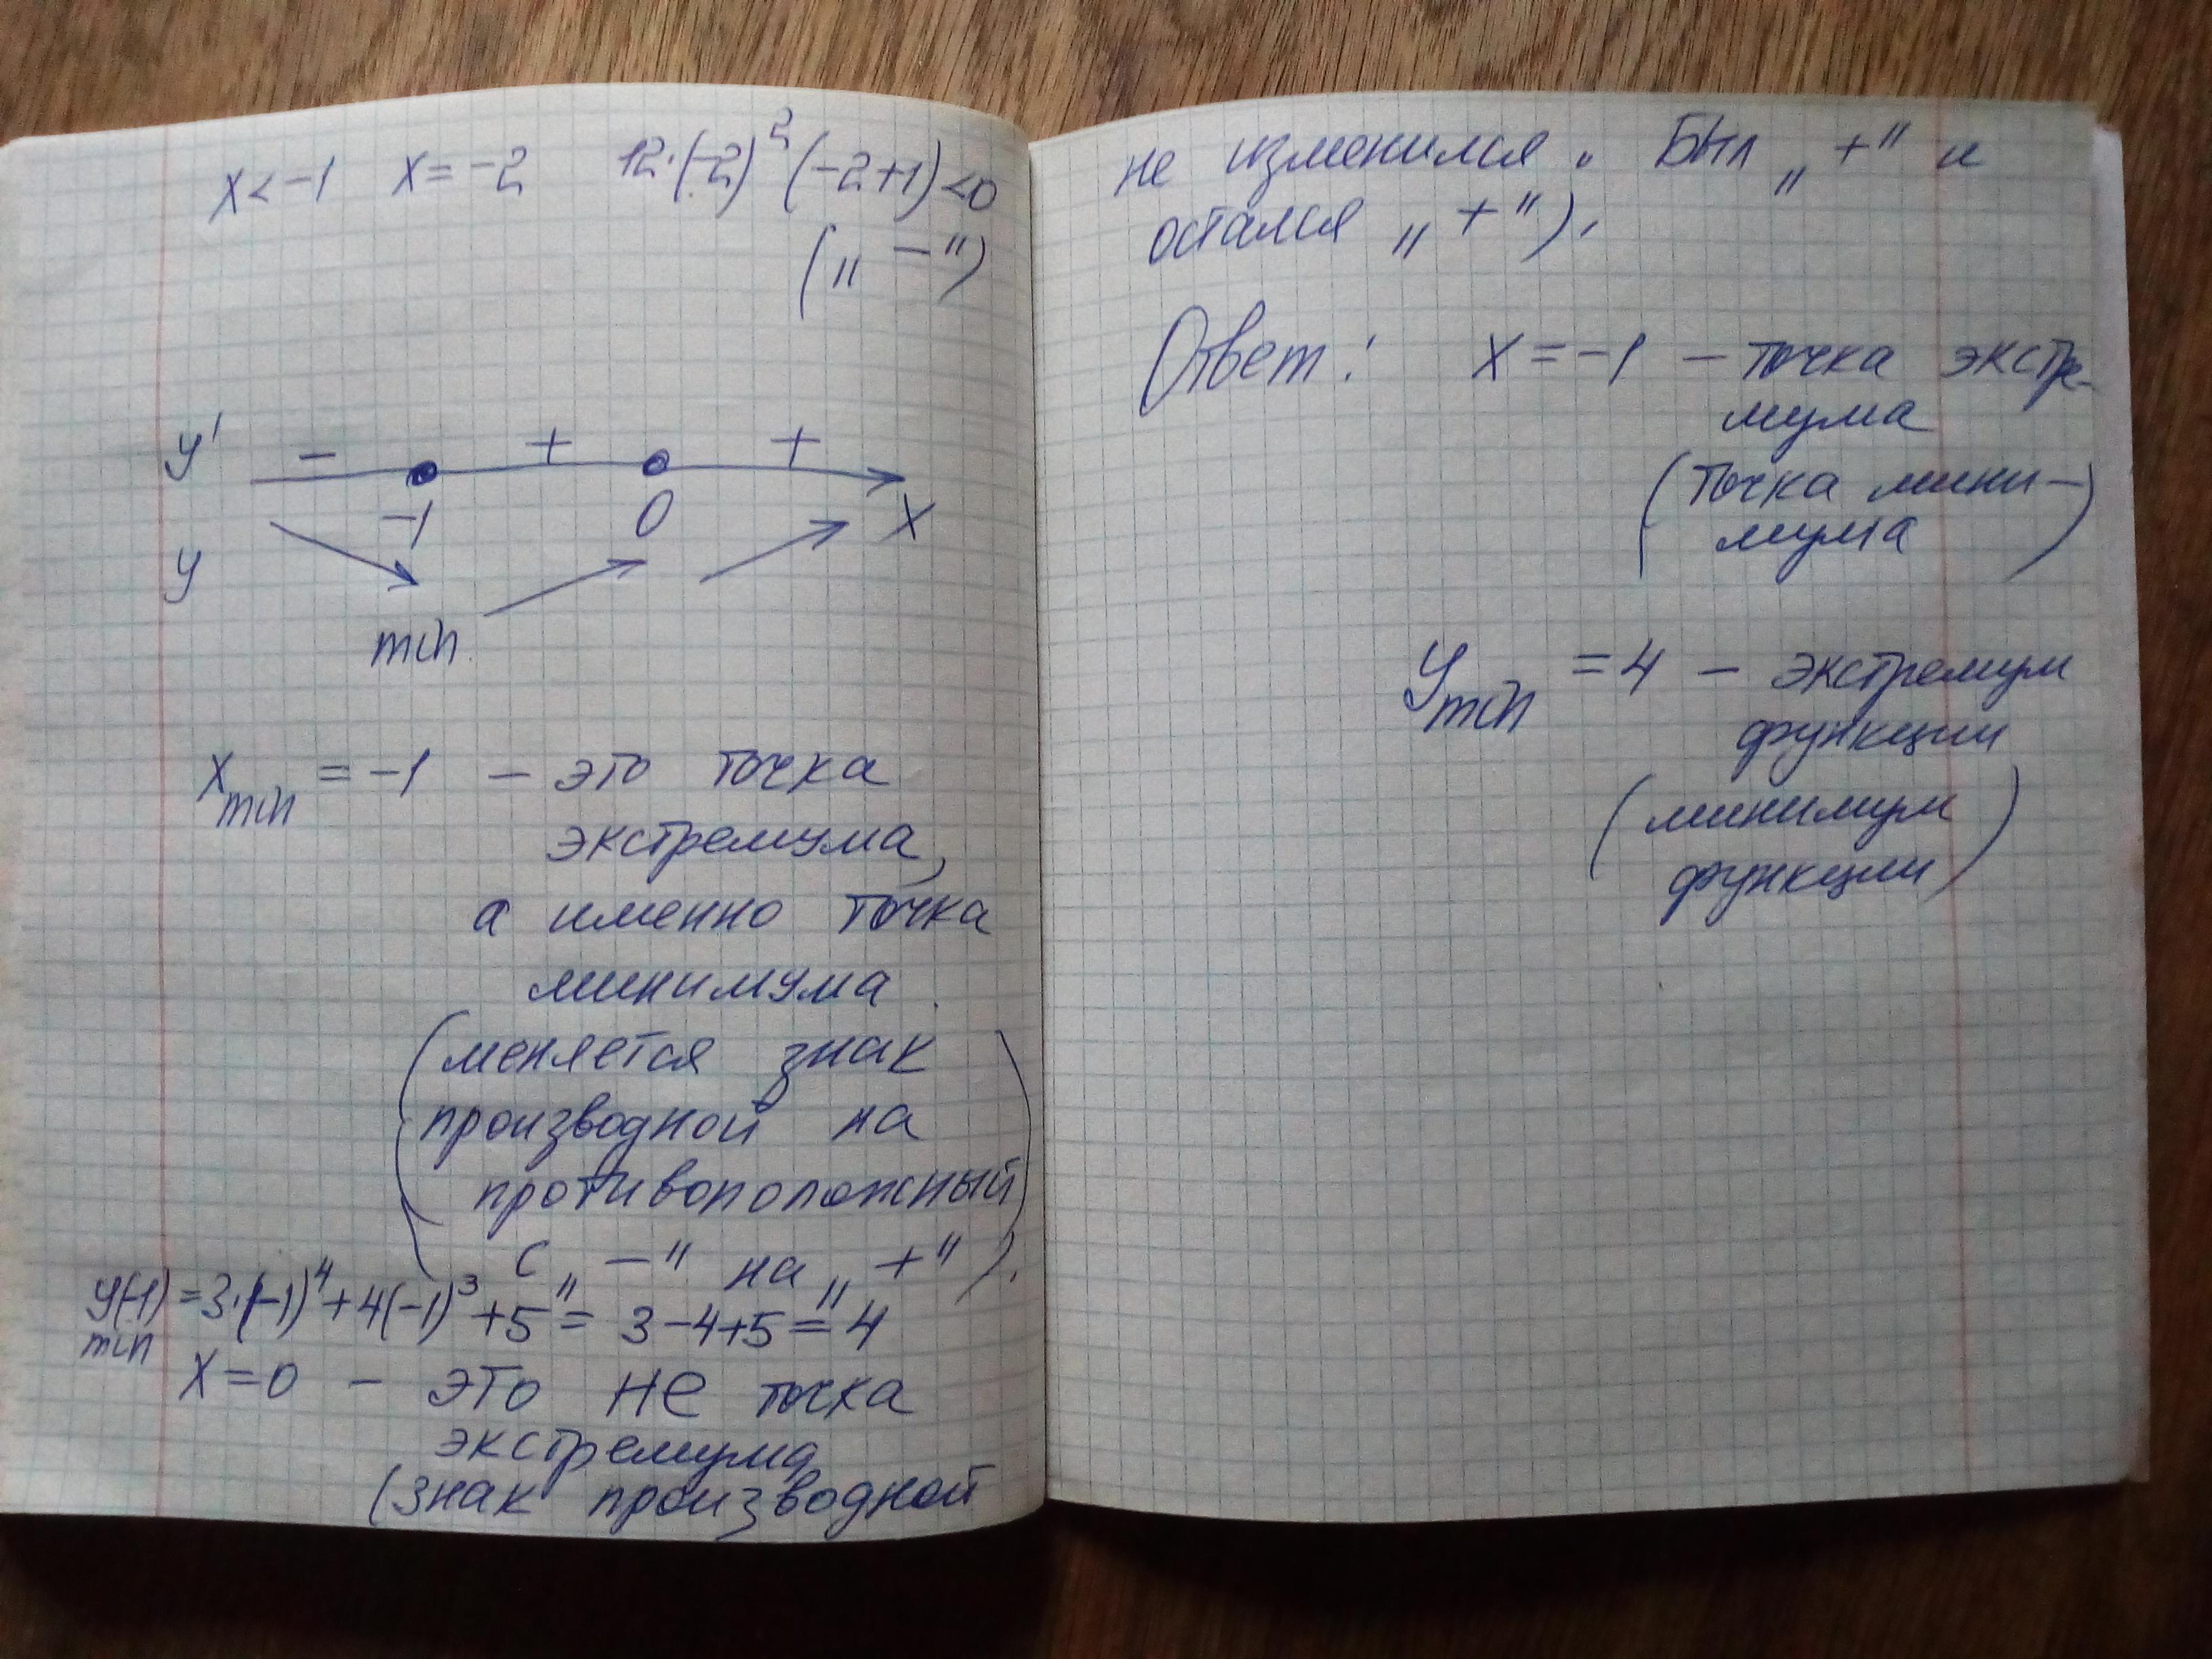 x < -1   x = -2   12·(-2)² (-2+1) < 0
(„ - “)
y'   -   +   +
-1   0   x
y
min
x min = -1 - это точка
экстремума,
а именно точка
минимума
(меняется знак
производной на
противоположный
с „ - “ на „ + “).
y(-1) min = 3·(-1)⁴ + 4(-1)³ + 5 = 3 - 4 + 5 = 4
x = 0 - это не точка
экстремума
(знак производной
не изменился. Был „ + “ и
остался „ + “).
Ответ: x = -1 - точка экстре-
мума
(точка мини-
мума)
y min = 4 - экстремум
функции
(минимум
функции)